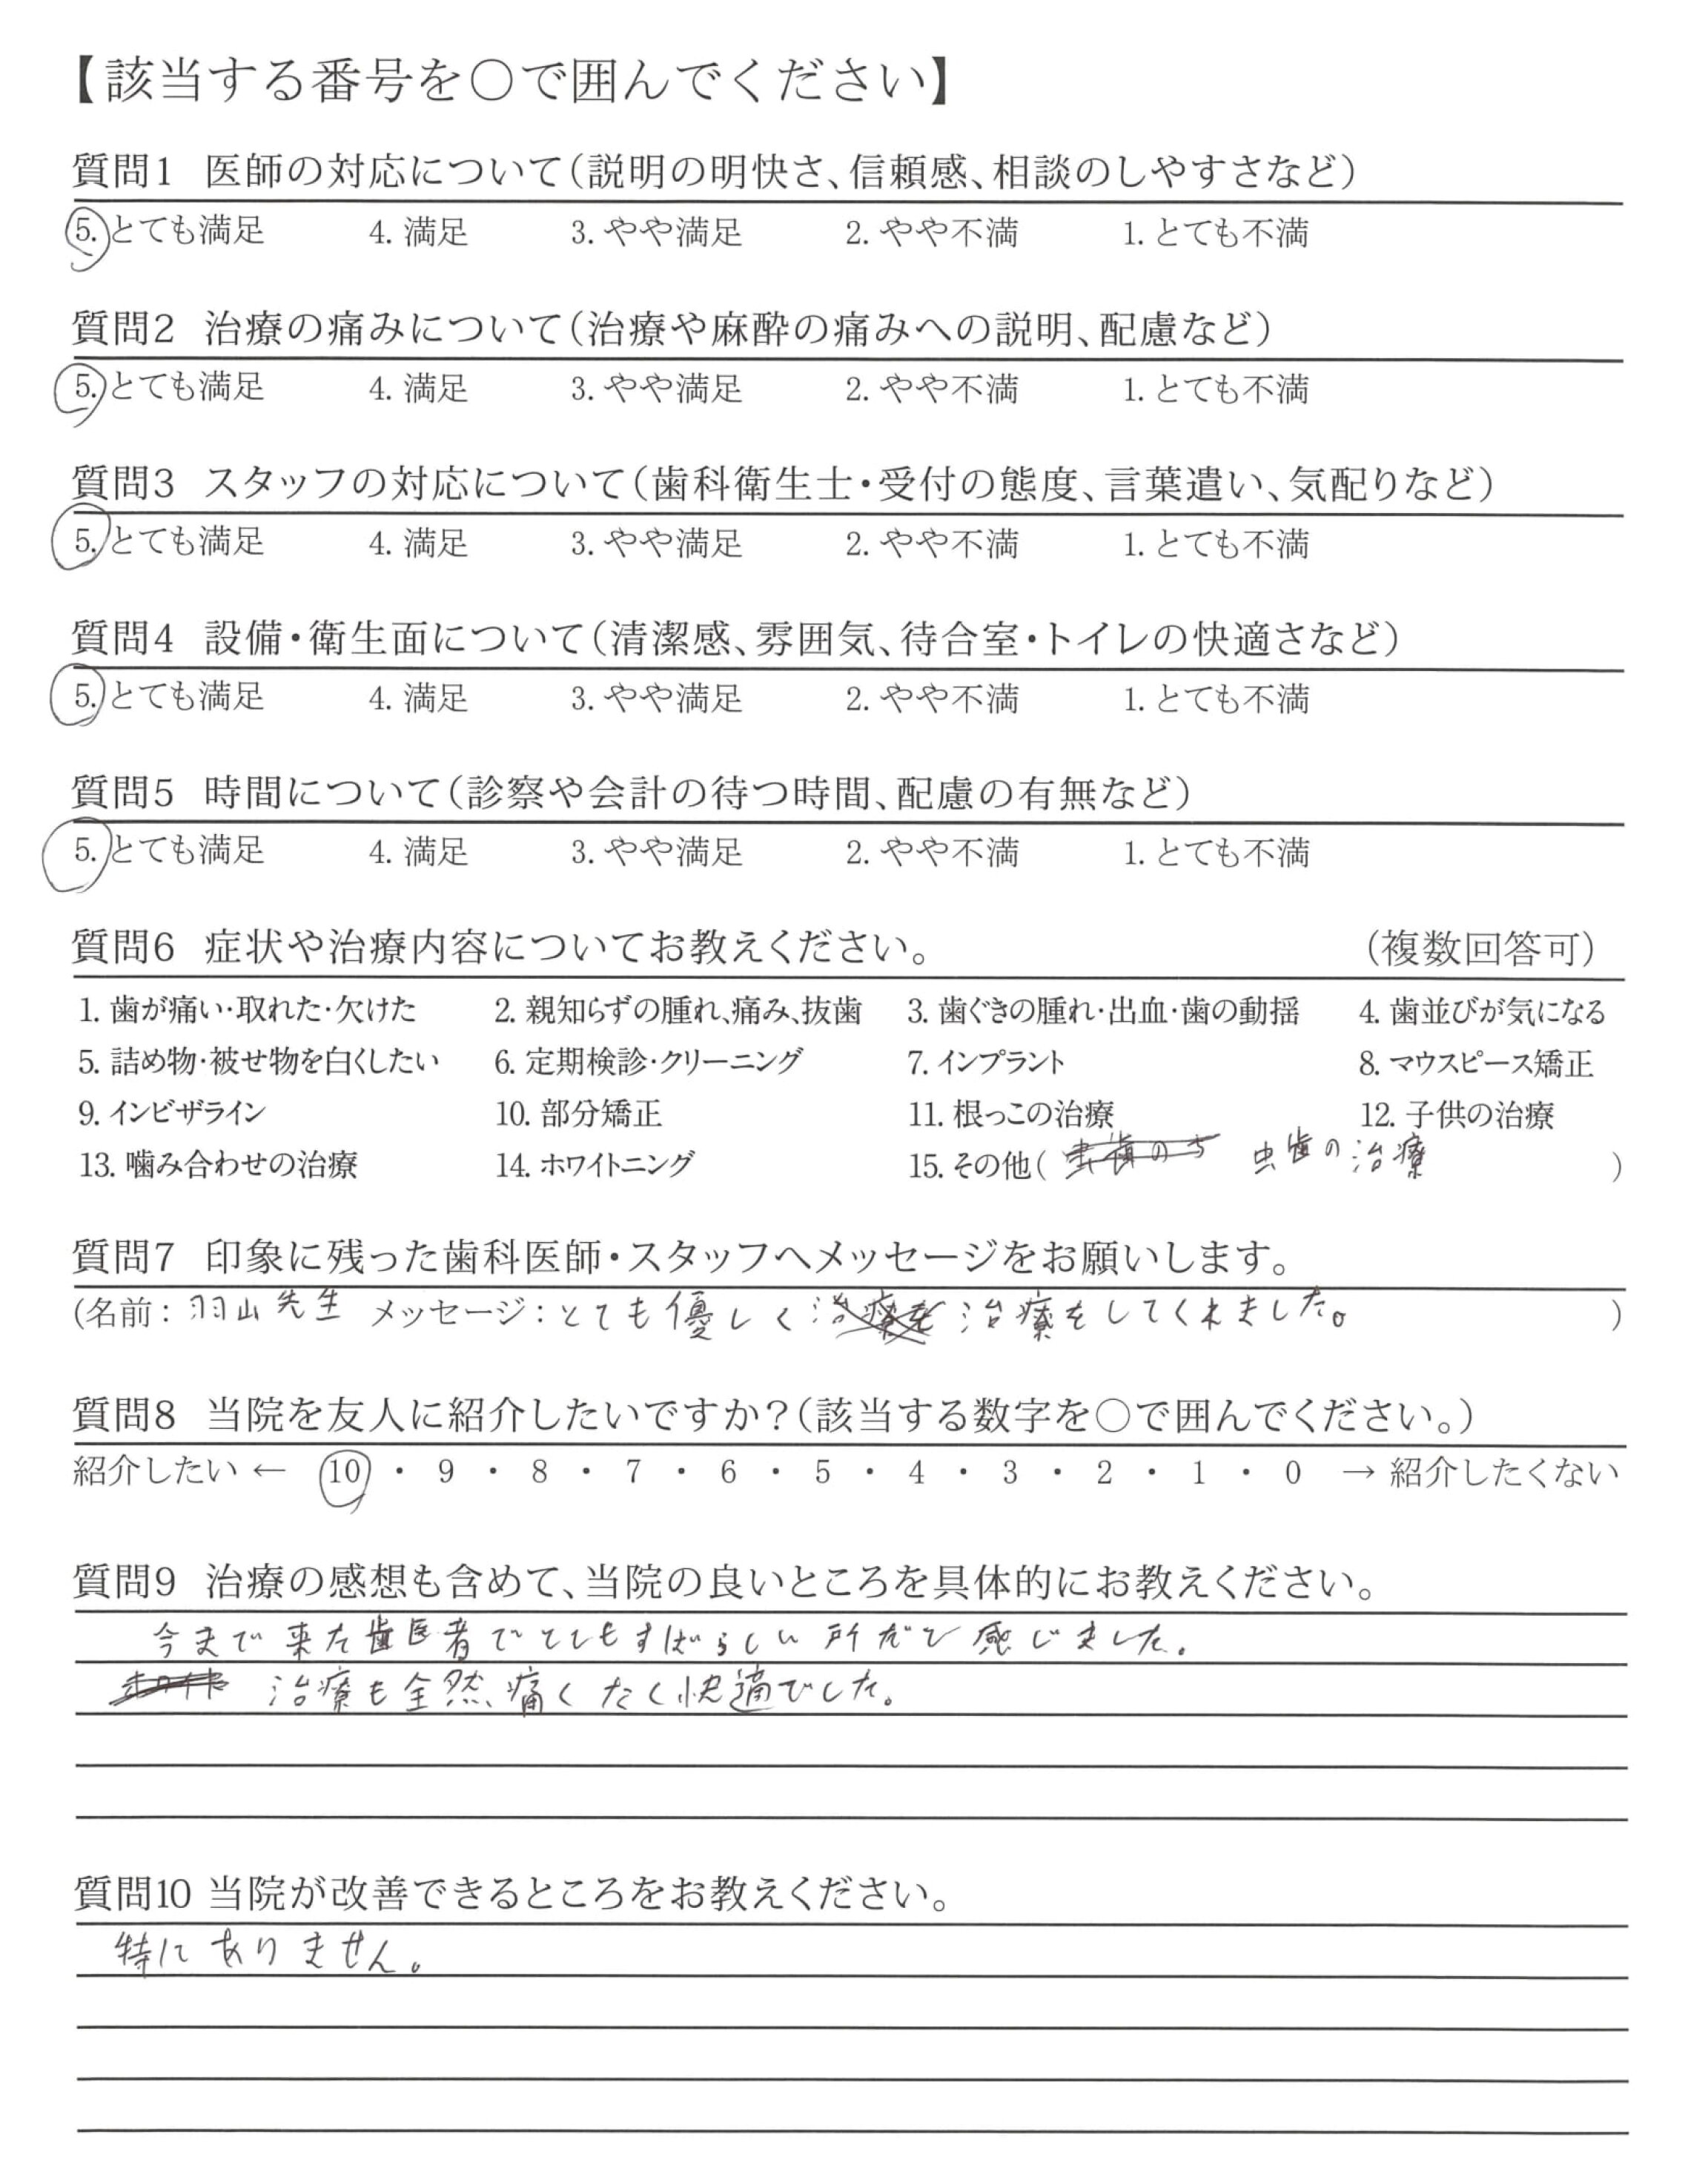 【該当する番号を○で囲んでください】
質問1 医師の対応について(説明の明快さ、信頼感、相談のしやすさなど)
5. とても満足 4. 満足 3. やや満足 2. やや不満 1. とても不満
質問2 治療の痛みについて(治療や麻酔の痛みへの説明、配慮など)
5. とても満足 4. 満足 3. やや満足 2. やや不満 1. とても不満
質問3 スタッフの対応について(歯科衛生士・受付の態度、言葉遣い、気配りなど)
5. とても満足 4. 満足 3. やや満足 2. やや不満 1. とても不満
質問4 設備・衛生面について(清潔感、雰囲気、待合室・トイレの快適さなど)
5. とても満足 4. 満足 3. やや満足 2. やや不満 1. とても不満
質問5 時間について(診察や会計の待つ時間、配慮の有無など)
5. とても満足 4. 満足 3. やや満足 2. やや不満 1. とても不満
質問6 症状や治療内容についてお教えください。 (複数回答可)
1. 歯が痛い・取れた・欠けた 2. 親知らずの腫れ、痛み、抜歯 3. 歯ぐきの腫れ・出血・歯の動揺 4. 歯並びが気になる
5. 詰め物・被せ物を白くしたい 6. 定期検診・クリーニング 7. インプラント 8. マウスピース矯正
9. インビザライン 10. 部分矯正 11. 根っこの治療 12. 子供の治療
13. 噛み合わせの治療 14. ホワイトニング 15. その他( 虫歯の治療 )
質問7 印象に残った歯科医師・スタッフへメッセージをお願いします。
(名前: 羽山先生 メッセージ: とても優しく 治療をしてくれました。 )
質問8 当院を友人に紹介したいですか?(該当する数字を○で囲んでください。)
紹介したい ← 10 ・ 9 ・ 8 ・ 7 ・ 6 ・ 5 ・ 4 ・ 3 ・ 2 ・ 1 ・ 0 → 紹介したくない
質問9 治療の感想も含めて、当院の良いところを具体的にお教えください。
今まで来た歯医者でとてもすばらしい所だと感じました。
治療も全然痛くなく快適でした。
質問10 当院が改善できるところをお教えください。
特にありません。